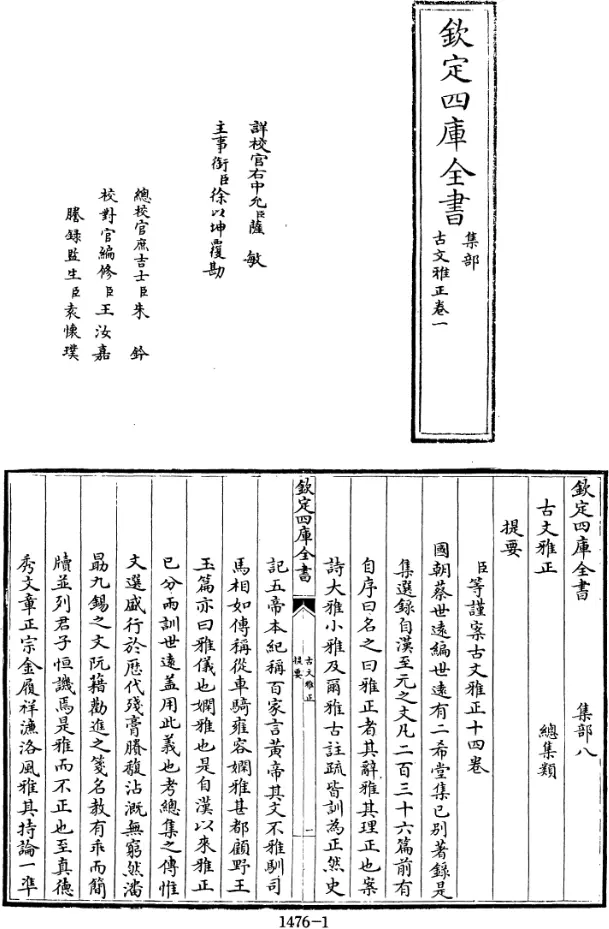 欽定四庫全書
集部
古文雅正卷一
詳校官右中允臣薩敏
主事銜臣徐以坤覆勘
總校官庶吉士臣朱鈐
校對官編修臣王汝嘉
謄錄監生臣袁懷璞
欽定四庫全書 集部八
古文雅正 總集類
提要
臣等謹案古文雅正十四卷
國朝蔡世遠編世遠有二希堂集已別著錄是
集選錄自漢至元之文凡二百三十六篇前有
自序曰名之曰雅正者其辭雅其理正也案
詩大雅小雅及爾雅古註疏皆訓為正然史
欽定四庫全書
古文雅正
提要
一
記五帝本紀稱百家言黃帝其文不雅馴司
馬相如傳稱從車騎雍容嫻雅甚都顧野王
玉篇亦曰雅儀也嫻雅也是自漢以來雅正
已分兩訓世遠蓋用此義也考總集之傳惟
文選盛行於歷代殘膏賸馥沾溉無窮然潘
勗九錫之文阮籍勸進之箋名教有乖而簡
牘並列君子恒譏焉是雅而不正也至真德
秀文章正宗金履祥濂洛風雅其持論一準
1476-1